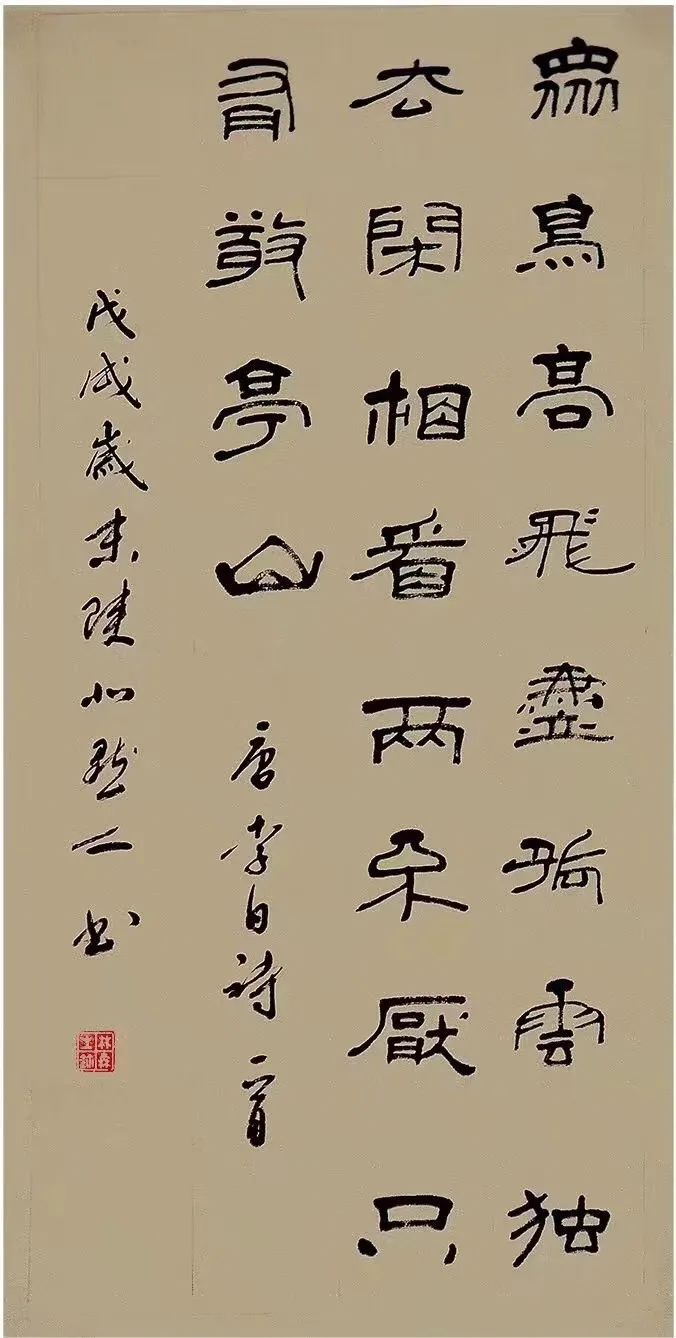 衆鳥高飛盡孤雲独
去閑相看两不厭只
有敬亭山 唐李白詩一首
戊戌歲末 书